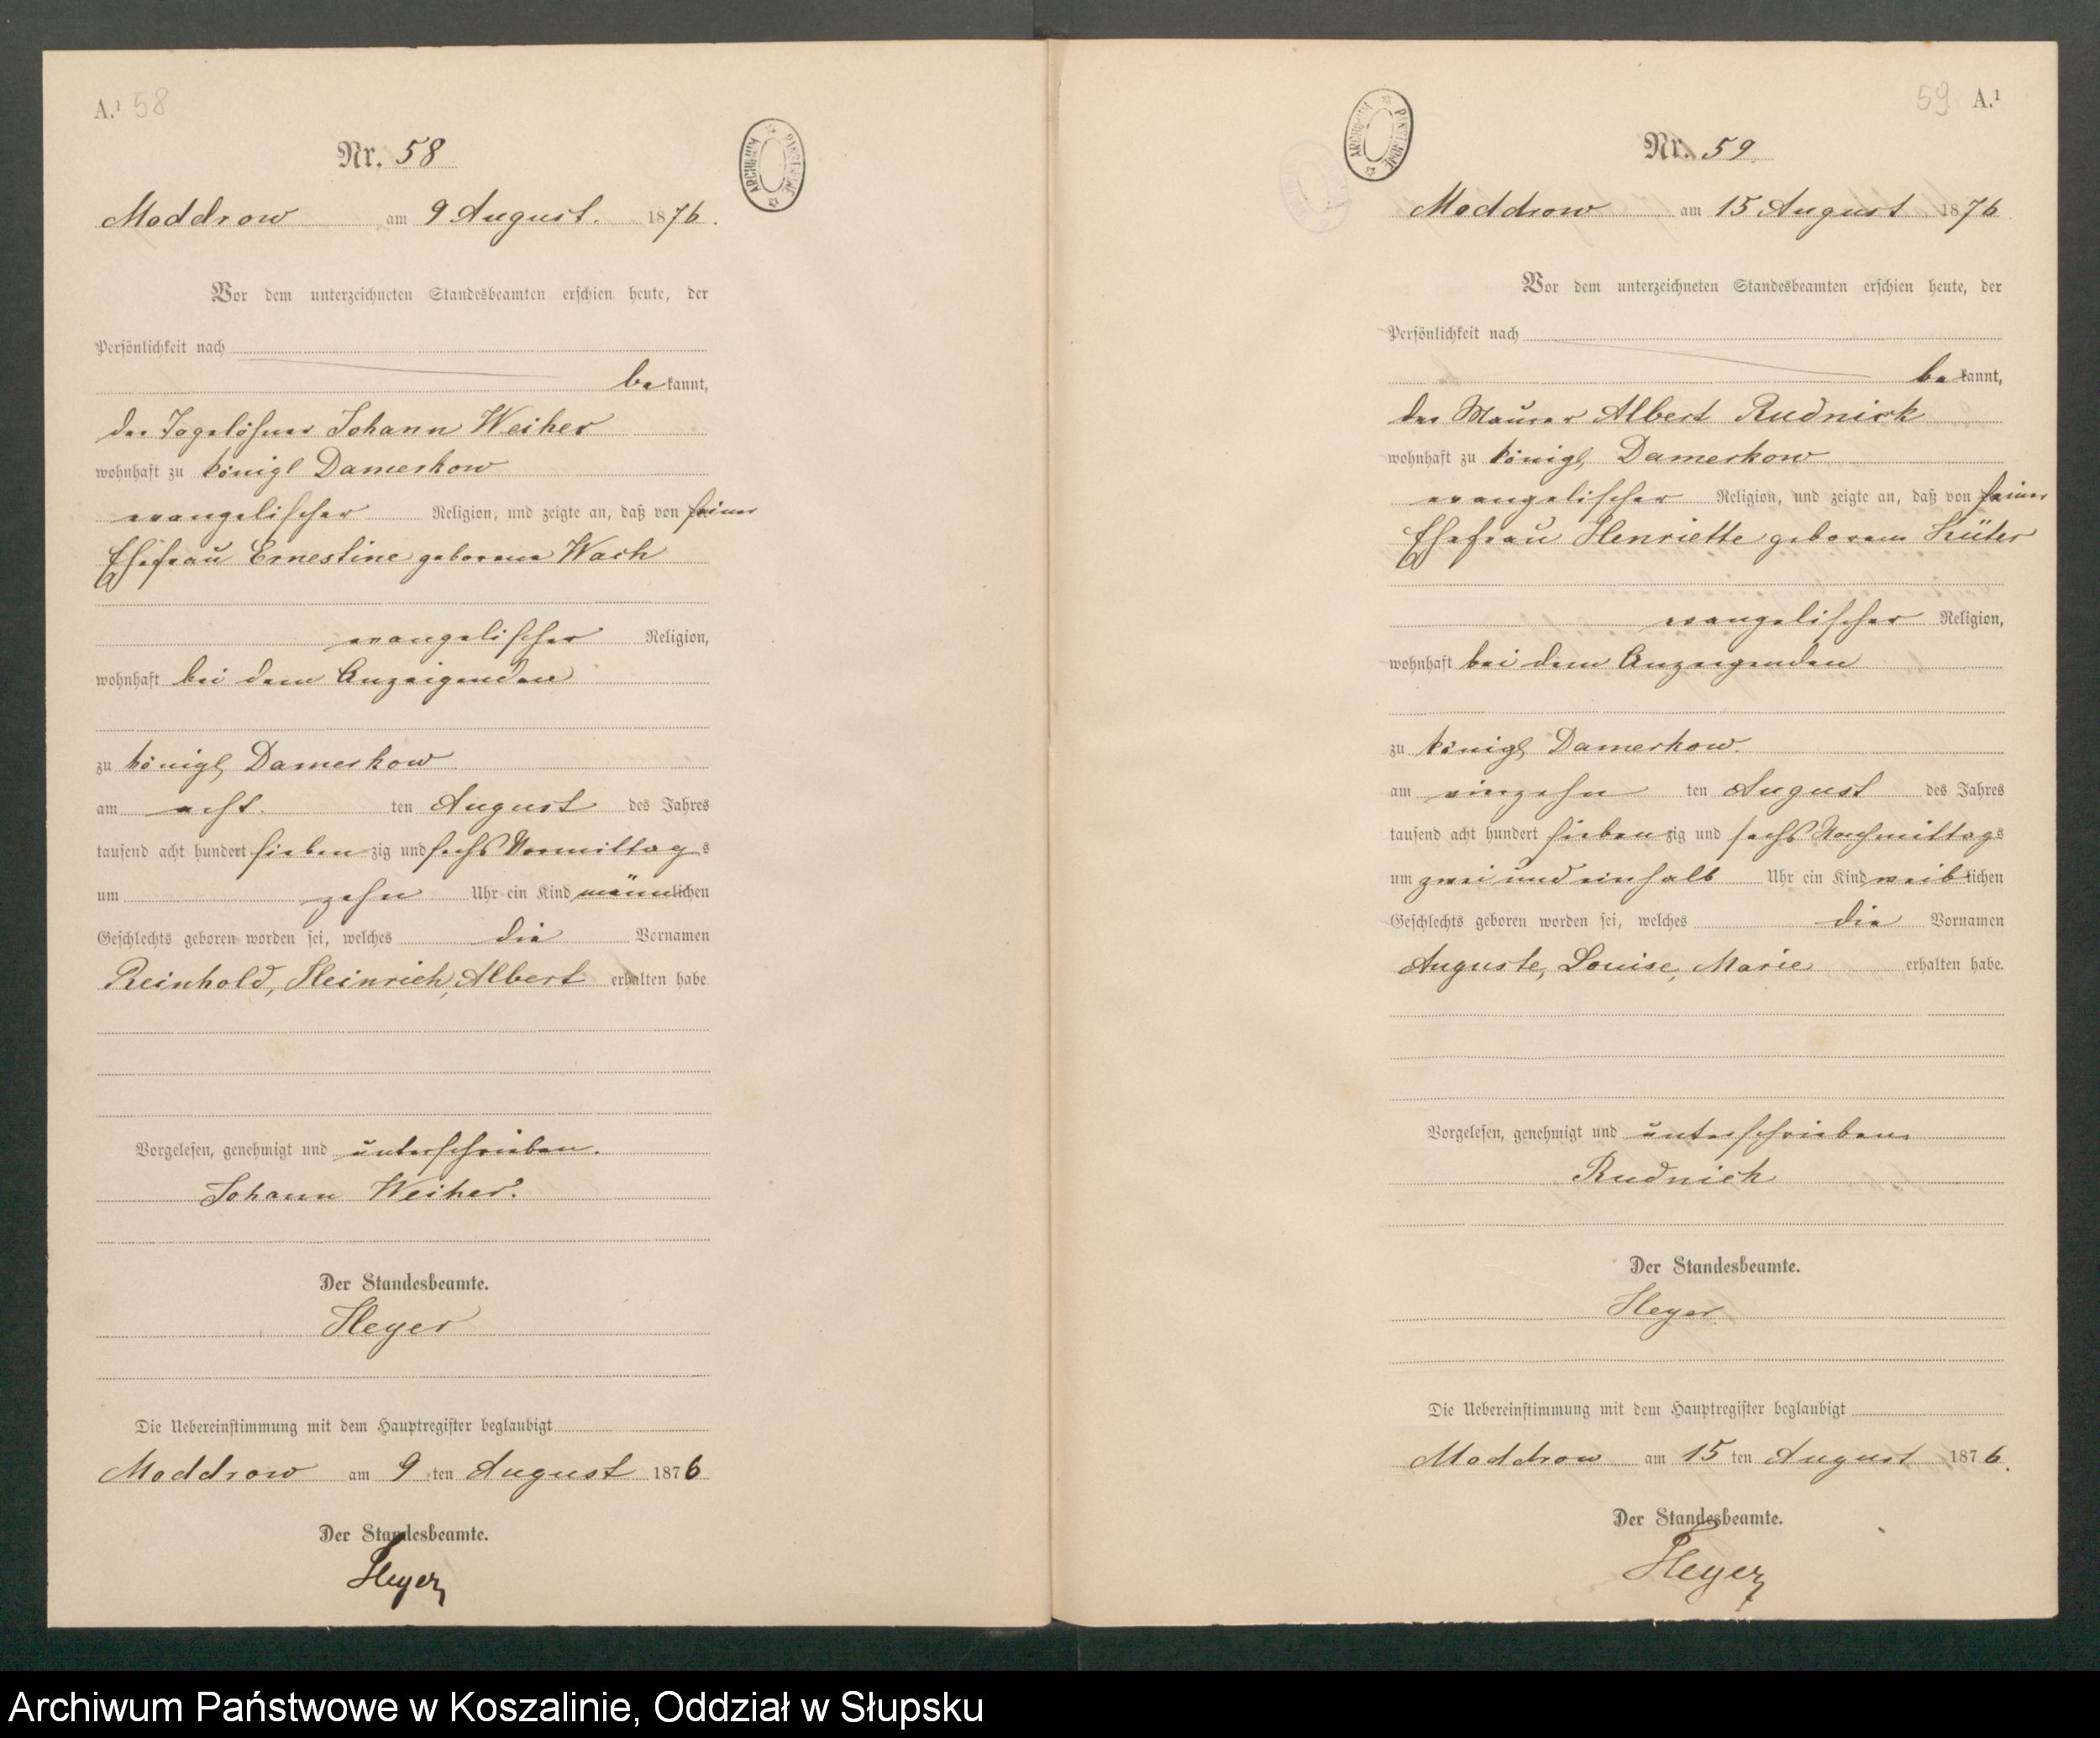 A.¹ 58
Nr. 58
ARCHIWUM PAŃSTWOWE
Moddrow am 9 August. 1876.
Vor dem unterzeichneten Standesbeamten erschien heute, der
Persönlichkeit nach
bekannt,
der Tagelöhner Johann Weiher
wohnhaft zu königl Damerkow
evangelischer Religion, und zeigte an, daß von seiner
Ehefrau Ernestine geborene Wach
evangelischer Religion,
wohnhaft bei dem Anzeigenden
zu königl Damerkow
am acht ten August des Jahres
tausend acht hundert siebenzig und sechs Vormittags
um zehn Uhr ein Kind männlichen
Geschlechts geboren worden sei, welches die Vornamen
Reinhold, Heinrich, Albert erhalten habe
Vorgelesen, genehmigt und unterschrieben.
Johann Weiher.
Der Standesbeamte.
Heyer
Die Uebereinstimmung mit dem Hauptregister beglaubigt
Moddrow am 9 ten August 1876
Der Standesbeamte.
Heyer
59 A.¹
ARCHIWUM PAŃSTWOWE
Nr. 59.
Moddrow am 15 August 1876
Vor dem unterzeichneten Standesbeamten erschien heute, der
Persönlichkeit nach
bekannt,
der Maurer Albert Rudnick
wohnhaft zu königl Damerkow
evangelischer Religion, und zeigte an, daß von seiner
Ehefrau Henriette geborene Hüter
evangelischer Religion,
wohnhaft bei dem Anzeigenden
zu königl Damerkow.
am vierzehn ten August des Jahres
tausend acht hundert siebenzig und sechs Nachmittags
um zwei und einhalb Uhr ein Kind weiblichen
Geschlechts geboren worden sei, welches die Vornamen
Auguste, Louise, Marie erhalten habe.
Vorgelesen, genehmigt und unterschrieben
Rudnick
Der Standesbeamte.
Heyer
Die Uebereinstimmung mit dem Hauptregister beglaubigt
Moddrow am 15 ten August 1876.
Der Standesbeamte.
Heyer
Archiwum Państwowe w Koszalinie, Oddział w Słupsku